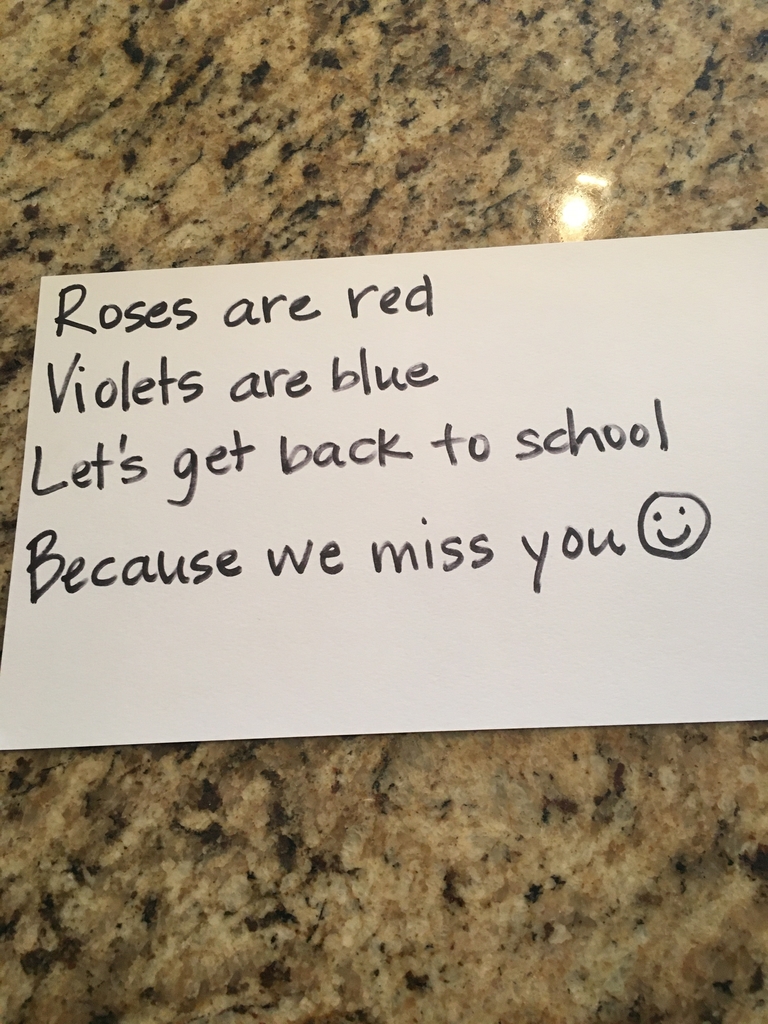 Roses are red
Violets are blue
Let's get back to school
Because we miss you